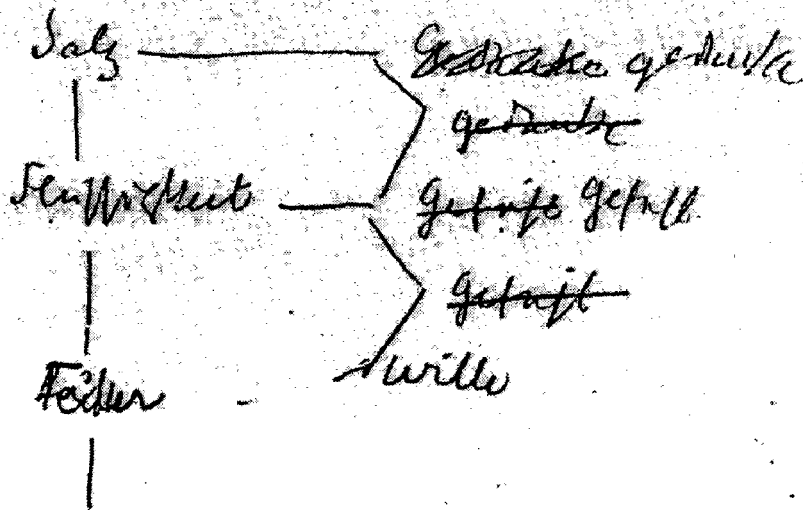 Salz Gedanke gedanke
gedanke
Flüssigkeit Gefühl Gefühl
Gefühl
Wille